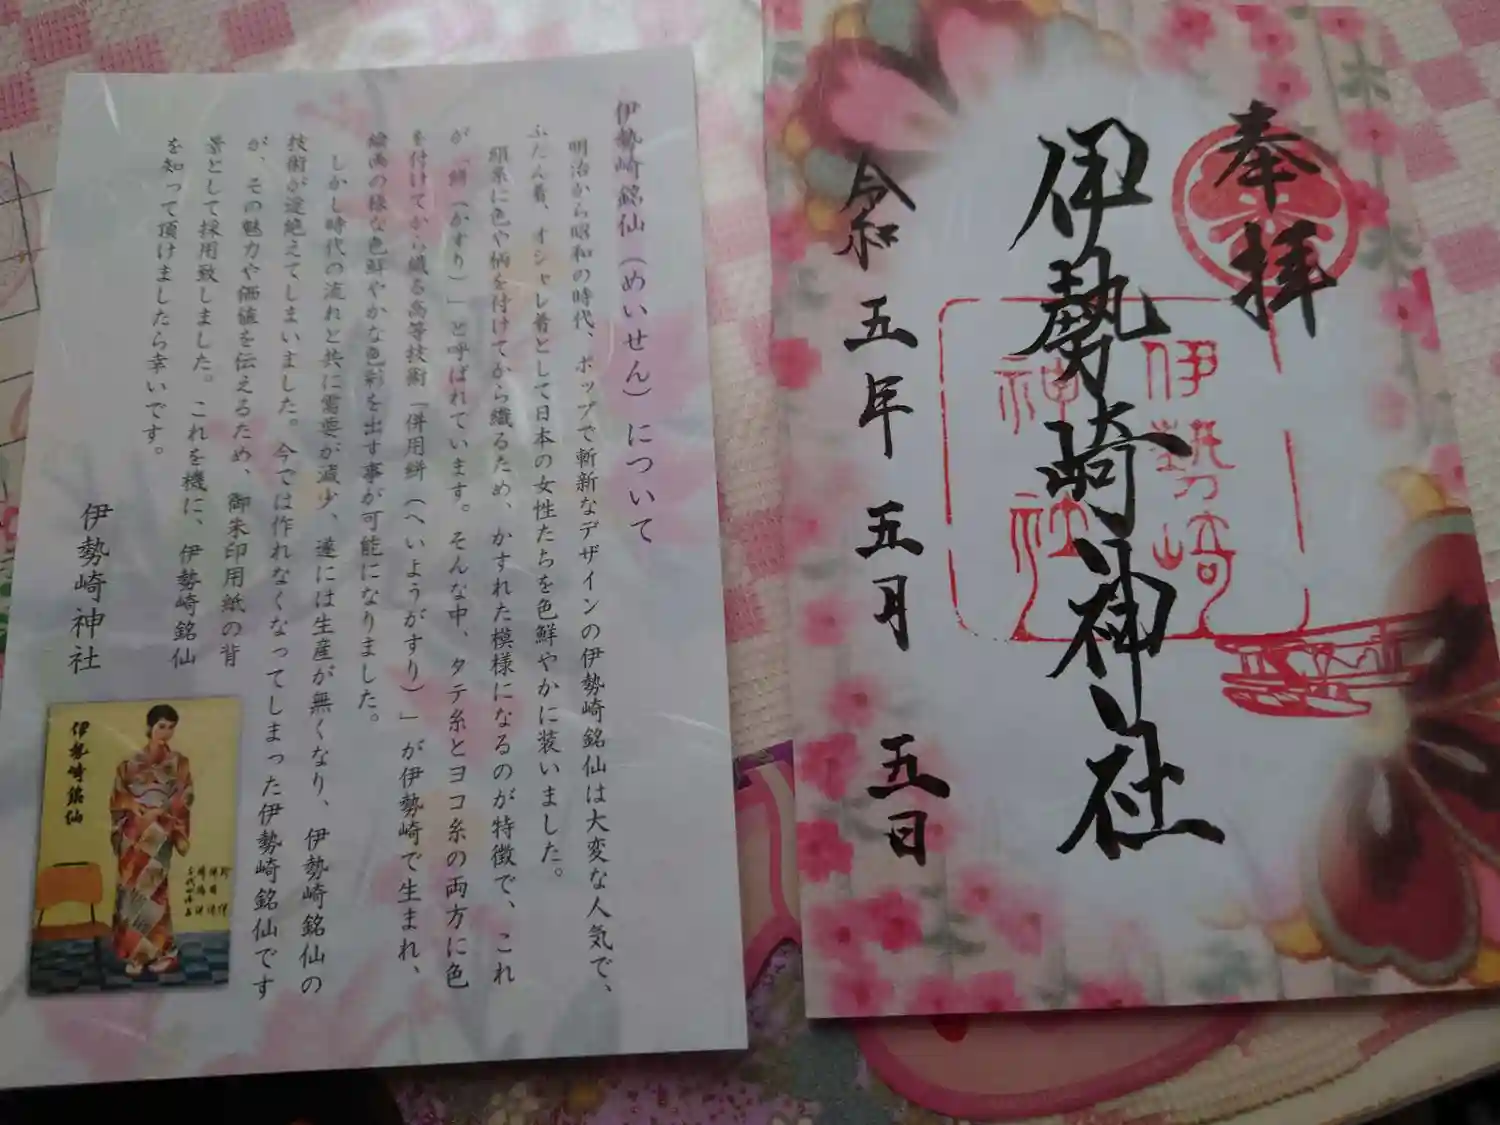 伊勢崎銘仙（めいせん）について
明治から昭和の時代、ポップで斬新なデザインの伊勢崎銘仙は大変な人気で、
ふだん着、オシャレ着として日本の女性たちを色鮮やかに装いました。
絹糸に色や柄を付けてから織るため、かすれた模様になるのが特徴で、これ
が「絣（かすり）」と呼ばれています。そんな中、タテ糸とヨコ糸の両方に色
を付けてから織る高等技術「併用絣（へいようがすり）」が伊勢崎で生まれ、
絵画の様な色鮮やかな色彩を出す事が可能になりました。
しかし時代の流れと共に需要が減少、遂には生産が無くなり、伊勢崎銘仙の
技術が途絶えてしまいました。今では作れなくなってしまった伊勢崎銘仙です
が、その魅力や価値を伝えるため、御朱印用紙の背
景として採用致しました。これを機に、伊勢崎銘仙
を知って頂けましたら幸いです。
伊勢崎神社
伊勢崎銘仙
奉拝
伊勢崎神社
令和五年五月五日
伊勢崎
神社